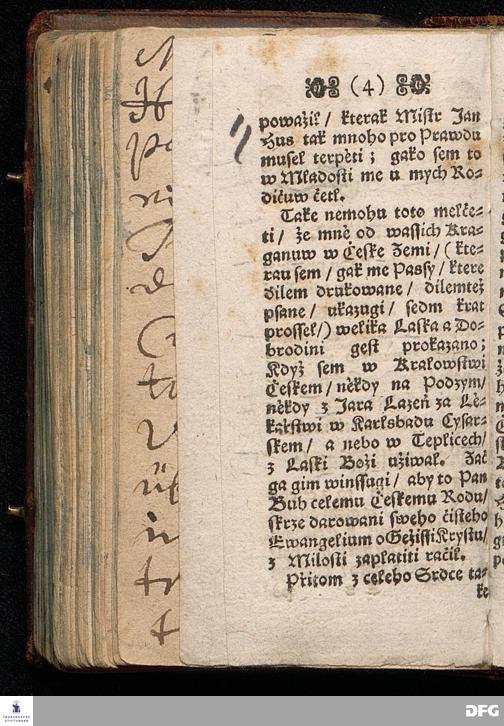 (4)
powážil / kterak Mistr Jan
Hus tak mnoho pro Prawdu
musel terpěti ; gako sem to
w Mladosti me u mych Ro=
dičuw četl.
Take nemohu toto melče=
ti / že mně od wassich Kra=
ganuw w Česke Zemi / ( kte=
rau sem / gak me Passy / ktere
dilem drukowane / dilemtež
psane / ukazugi / sedm krat
prossel /) welika Laska a Do=
brodini gest prokazano ;
Když sem w Kralowstwi
Českem / někdy na Podzym /
někdy z Jara Lazeň za Lé=
kařstwi w Karlsbadu Cysar=
skem / a nebo w Teplicech /
z Laski Boži užiwal. Zač
ga gim winssugi / aby to Pan
Buh celemu Českemu Rodu /
skrze darowani sweho čisteho
Ewangelium o Gežissi Krystu /
z Milosti zaplatiti račil.
Přitom z celeho Srdce ta=
ke
DFG